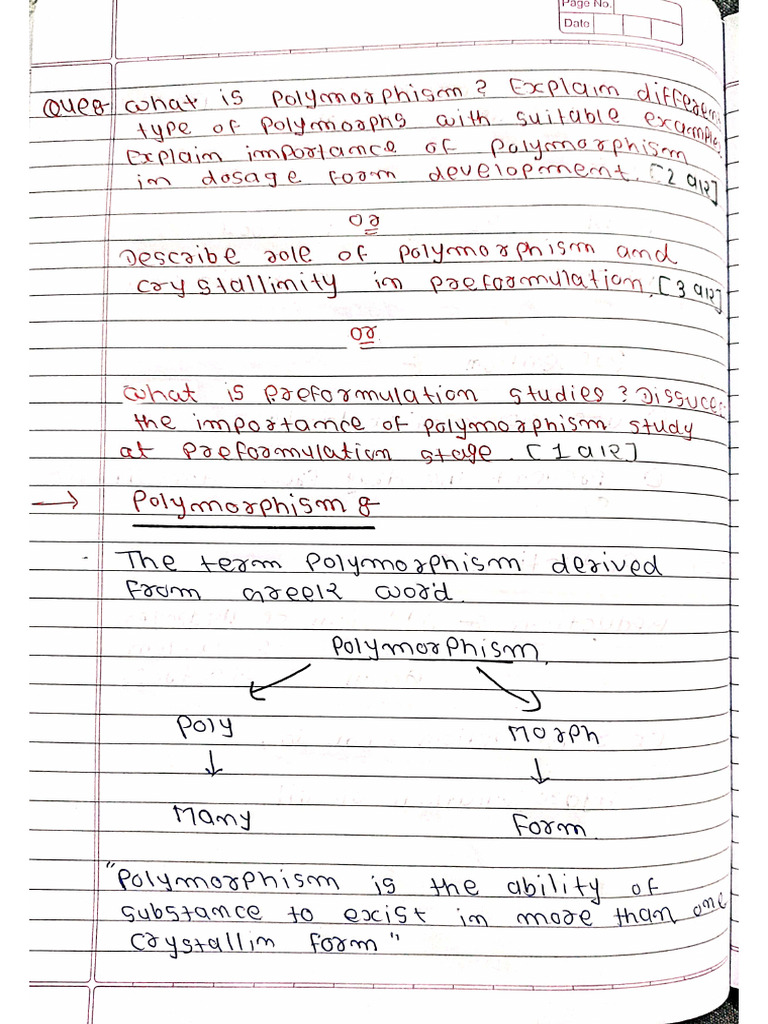 Page No.
Date
Ques what is polymorphism? Explain different
type of polymorphs with suitable examples
Explain importance of polymorphism
in dosage form development. [2 a12]
or
Describe role of polymorphism and
crystallimity in preformulation. [3 a12]
or
what is preformulation studies? Dissuces
the importance of polymorphism study
at preformulation stage. [1 a12]
→ Polymorphism :-
The term polymorphism derived
from greek word.
Polymorphism.
Poly Morph
Many Form
"polymorphism is the ability of
substance to exist in more than one
crystallin form"